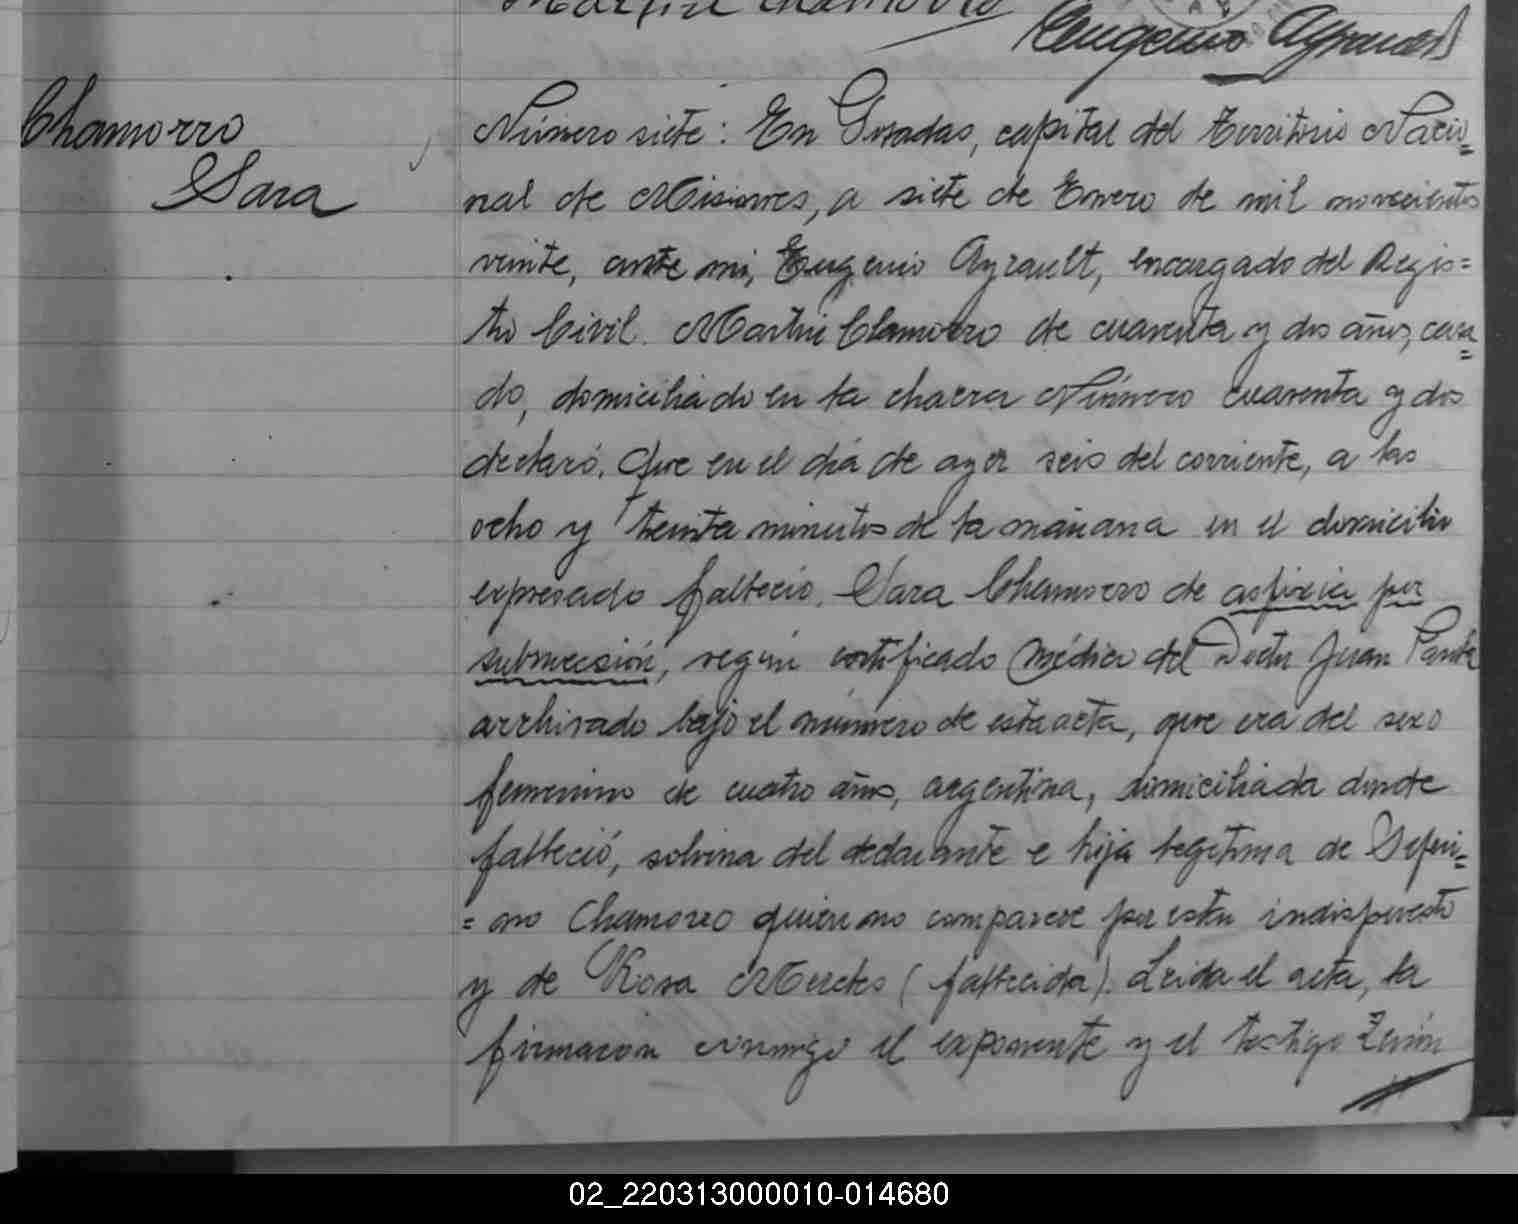 Martin Chamorro
Eugenio Ayrault
Chamorro
Sara
Número siete: En Posadas, capital del Territorio Nacio=
nal de Misiones, a siete de Enero de mil novecientos
veinte, ante mi, Eugenio Ayrault, encargado del Regis=
tro Civil. Martin Chamorro de cuarenta y dos años, casa=
do, domiciliado en la chacra Número cuarenta y dos
declaró. Que en el dia de ayer seis del corriente, a las
ocho y treinta minutos de la mañana en el domicilio
expresado falleció. Sara Chamorro de asfixia por
submersión, según certificado médico del Doctor Juan
archivado bajo el número de esta acta, que era del sexo
femenino de cuatro años, argentina, domiciliada donde
falleció, sobrina del declarante e hija legitima de Seferi=
=no Chamorro quien no comparece por estar indispuesto
y de Rosa (fallecida). Leida el acta, la
firmaron conmigo el exponente y el testigo Zenón
02_220313000010-014680